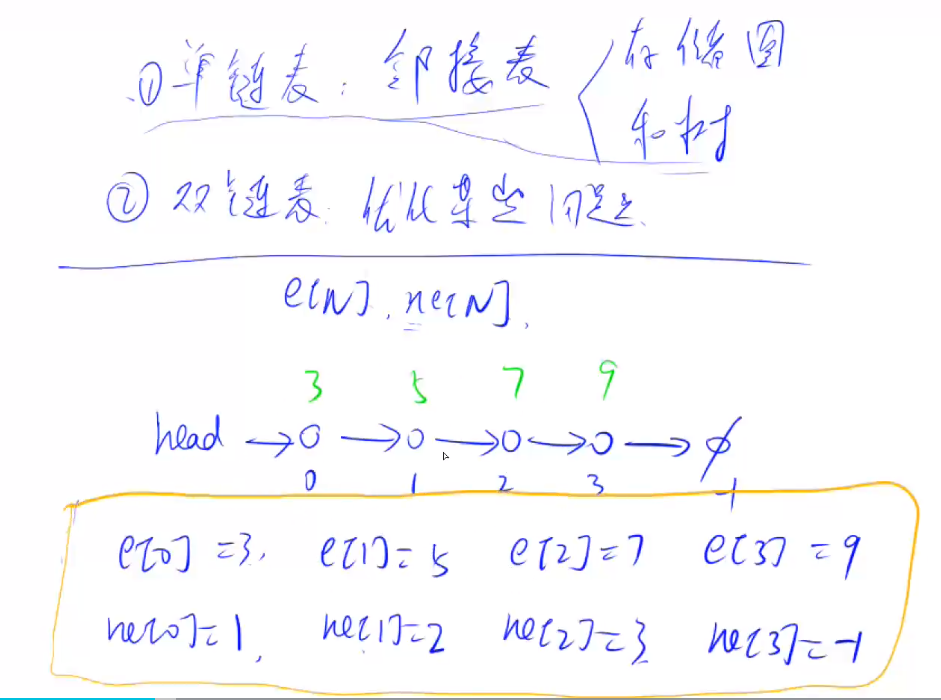 ①单链表：邻接表 存储图
和树
②双链表：优化某些问题.
e[N], ne[N],
3 5 7 9
head →O→O→O→O→∅
0 1 2 3 -1
e[0]=3, e[1]=5 e[2]=7 e[3]=9
ne[0]=1, ne[1]=2 ne[2]=3 ne[3]=-1